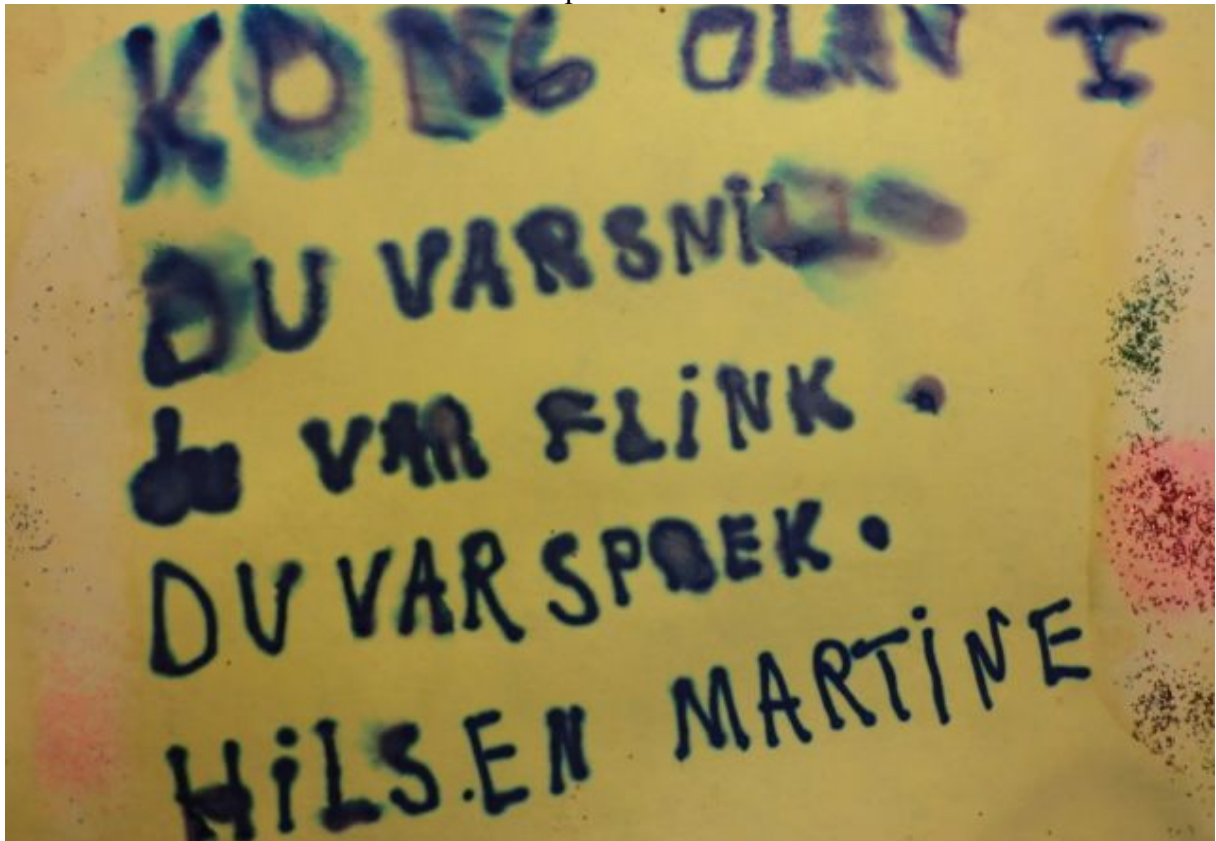 KONG OLAV V
DU VAR SNILL
du VAR FLINK.
DU VAR SPREK.
HiLSEN MARTiNE